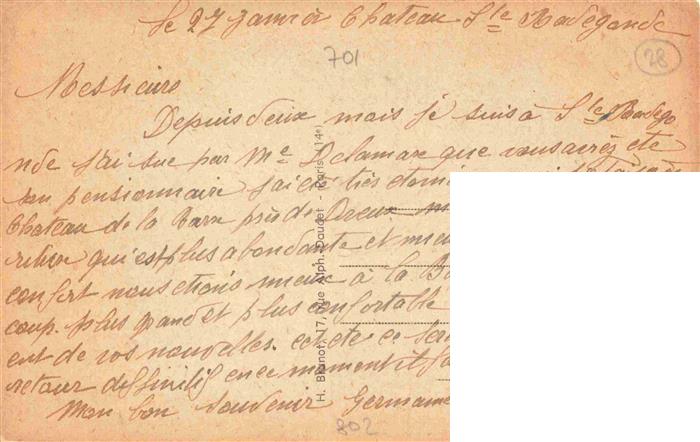 le 27 Janvier Chateau Ste Radegonde
701
28
Messieure
Depuis deux mois je suis à Ste Radego
nde j'ai sue par Me Delamare que vous avièz été
son pensionnaire j'ai été très
Chateau de la Barre près de Dreux
qui est plus abondante et
confort nous étions mieux à la
coup plus grand et plus confortable
ent de vos nouvelles. cet été ce
retour deffinitif en ce moment il
Mon bon souvenir Germaine
802
H. Bramot, 17, rue Alph. Daudet - Paris (14e)